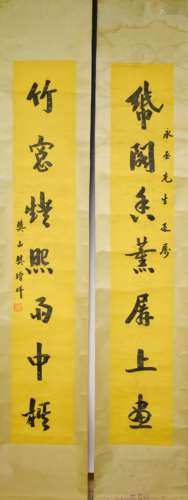 閣香薰屏上畫
先生
竹窗燈照雨中棋
樊山樊增祥